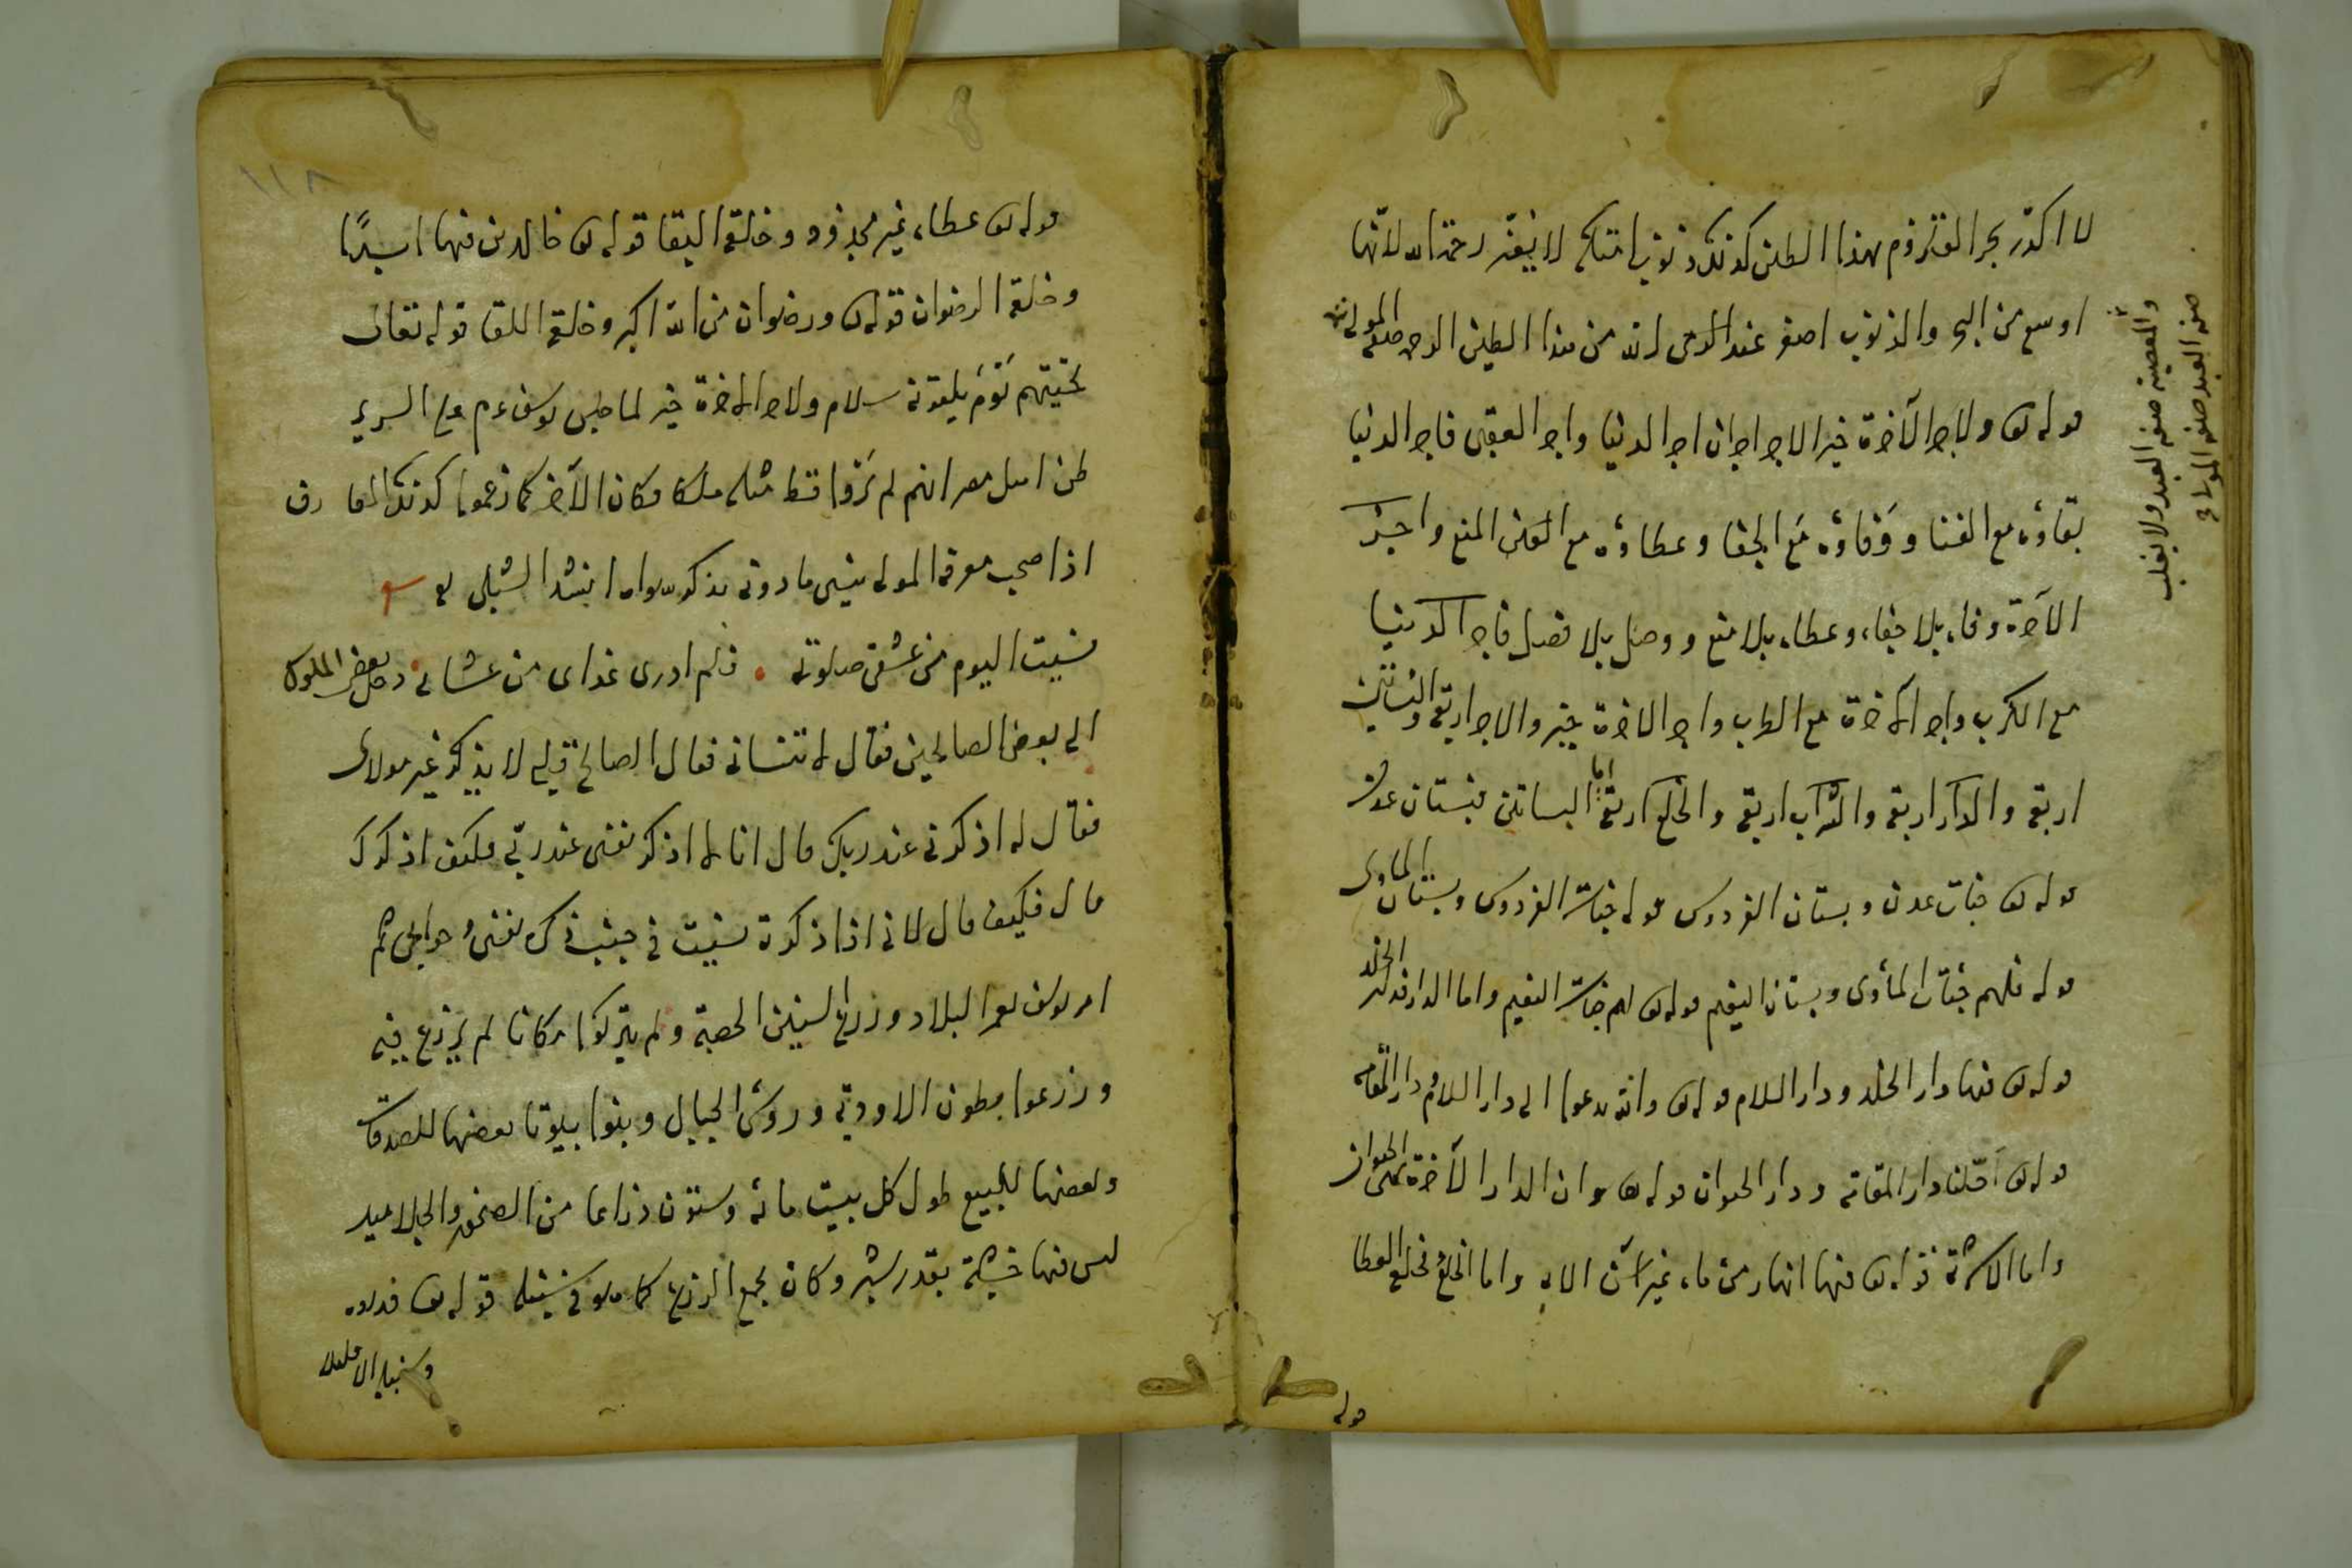 لا اكدر بحر القلزوم بهذا الطين كذلك ذنوب امتك لا يغير رحمة الله لانها
اوسع من البحر والذنوب اصغر عند من هذا الطين الرحمة صفة المولى
والمعصية صفة العبد ولا يغلب
صفة العبد صفة المولى
قوله تع ولاجر الآخرة خير الاجر اجران اجر الدنيا واجر العقبى فاجر الدنيا
بقاؤه مع الفنا ووفاؤه مع الجفا وعطاؤه مع المنع واجر
الآخرة وفاء بلا جفاء وعطاء بلا منع ووصل بلا فصل فاجر الدنيا
مع الكرب واجر الآخرة مع الطرب واجر الآخرة خير والاجر اربعة والبساتين
اربعة والدار اربعة والشراب اربعة والخلع اربعة اما البساتين فبستان عدن
قوله تع جنات عدن وبستان الفردوس قوله جنات الفردوس وبستان الماوى
قوله فلهم جنات المأوى وبستان النعيم قوله تع لهم جنات النعيم واما الدار فدار الخلد
قوله تع فيها دار الخلد ودار السلام قوله تع والله يدعوا الى دار السلام ودار المقامة
قوله تع احلنا دار المقامة ودار الحيوان قوله تع وان الدار الآخرة لهى الحيوان
واما الاشربة قوله تع فيها انهار من ماء غير آسن الايه واما الخلع فخلع العطا
قوله
١١٨
قوله تع عطاء غير مجذوذ وخلعة البقا قوله تع خالدين فيها ابدًا
وخلعة الرضوان قوله تع ورضوان من الله اكبر وخلعة اللقا قوله تعالى
تحيتهم يَوْمَ يلقونه سلام ولاجر الآخرة خير لما جلس يوسف عم على السرير
ظن اهل مصر انهم لم يَرَوا قط مثله ملكا فكان الآخر كما زعموا كذلك العارف
اذا صحب معرفة المولى ينسى ما دونه بذكر سواه انشد الشبلى
نسيت اليوم من عشق صلوتى • فلم ادرى غداى من عشائى • دخل بعض الملوك
الى بعض الصالحين فقال له انا فقال الصالح قلبى لا يذكر غير مولاى
فقال له اذكرنى عند ربك قال انا لم اذكر نفسى عند ربى فكيف اذكرك
قال فكيف قال لانى اذا ذكرته نسيت فى جنب ذكره نفسى وحوايجى ثم
امر يوسف بعمر البلاد وزرع السنين الخصبة ولم يتركوا مكانا لم يزرع فيه
وزرعوا بطون الاودية ورؤس الجبال وبنوا بيوتا بعضها للصدقات
وبعضها للبيع طول كل بيت مائة وستون ذراعا من الصخور والجلاميد
ليس فيها خشبة بقدر شبر وكان يجمع الزرع كما هو فى سنبله قوله تع فذروه
فى سنبله الا قليلا